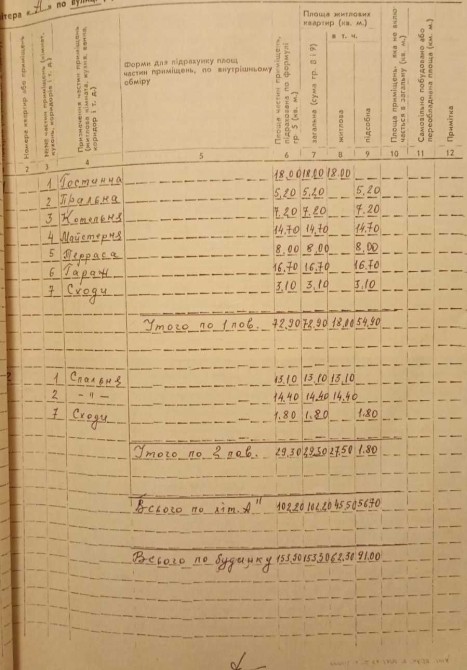 ітера „А" по вулиц
Номера квартир або приміщень
Номер частини приміщення (кімнат, кухонь, коридорів і т. д.)
Призначення частин приміщень (житлова кімната, кухня, ванна, коридор і т. д.)
Форми для підрахунку площ частин приміщень, по внутрішньому обміру
Площа частин приміщень, підрахована по формулі гр. 5 (кв. м.)
Площа житлових квартир (кв. м.)
загальна (сума гр. 8 і 9)
в т. ч.
житлова
підсобна
Площа приміщень, яка не включається в загальну (кв. м.)
Самовільно побудовано або переобладнана площа (кв. м.)
Примітка
2 3 4 5 6 7 8 9 10 11 12
1 Гостинна 18,00 18,00 18.00
2 Пральна 5,20 5,20 5,20
3 Котельня 7.20 7.20 7.20
4 Майстерня 14.70 14,70 14,70
5 Терраса 8,00 8,00 8,00
6 Гараж 16.70 16,70 16.70
7 Сходи 3,10 3,10 3,10
Утого по 1 пов. 72,90 72,90 18,00 54,90
2 1 Спальня 13,10 13,10 13,10
2 -"- 14.40 14,40 14,40
7 Сходи 1.80 1.80 1.80
Утого по 2 пов. 29.30 29,30 27.50 1.80
Всього по літ. А" 102,20 102,20 45,50 56.70
Всього по будинку 153,50 153,50 62,50 91.00